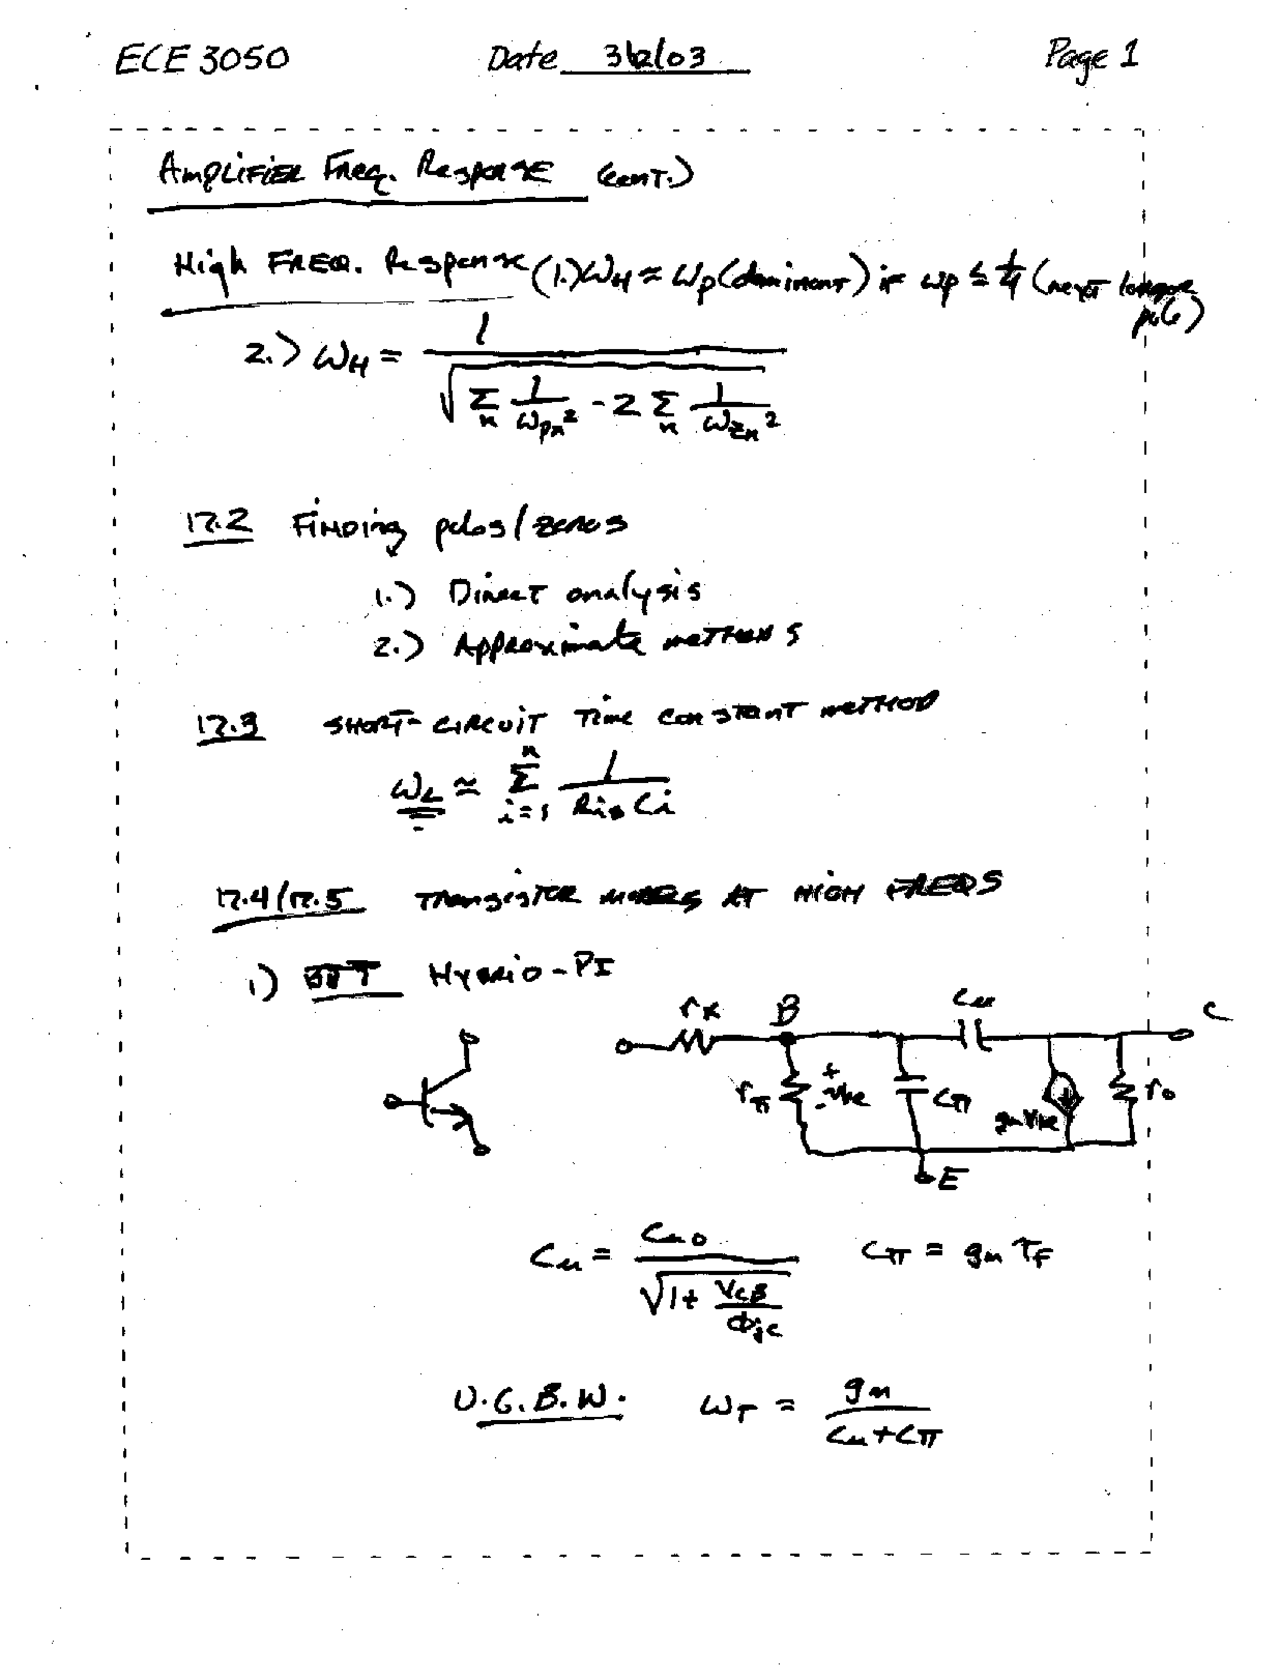 ECE 3050 Date 3/2/03 Page 1
Amplifier Freq. Response (cont.)
High Freq. Response (1.) ωH ≈ ωp(dominant) if ωp ≤ 1/4 (next
pole)
2.) ωH = 1 / √(Σn 1/ωpn² - 2 Σn 1/ωzn²)
17.2 Finding poles/zeros
1.) Direct analysis
2.) Approximate methods
17.3 SHORT-CIRCUIT Time constant method
ωL ≃ Σ(i=1 to n) 1/(Ris Ci)
17.4/17.5 Transistor models AT HIGH FREQS
1) BJT Hybrid-PI
rx B Cu C
rπ + vbe - Cπ gm vbe ro
E
Cu = Cuo / √(1 + VCB/Φjc) Cπ = gm τF
U.G.B.W. ωT = gm / (Cu + Cπ)